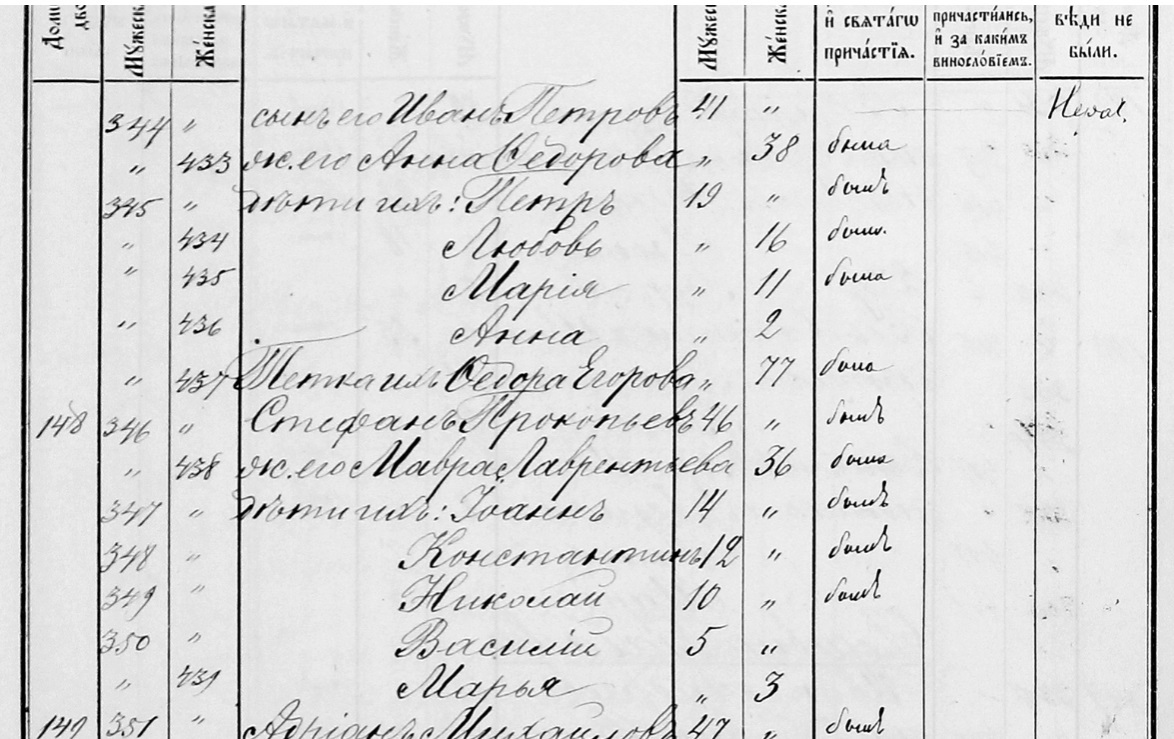 Доми
дво
Мꙋжеска
Же́нска
Мꙋжес
Же́нск
и҆ свѧта́гѡ
прича́стїѧ.
причасти́лись,
и҆ за каки́мъ
винослѡ́вїемъ.
вѣди не
бы́ли.
344 " сынъ его Иванъ Петровъ 41 "
" 433 ж. его Анна Ѳедорова " 38 была
345 " дѣти ихъ: Петръ 19 " былъ
" 434 Любовь " 16 была
" 435 Марія " 11 была
" 436 Анна " 2
" 437 Тетка ихъ Ѳедора Егорова " 77 была
148 346 " Стефанъ Прокопьевъ 46 " былъ
" 438 ж. его Мавра Лаврентьева " 36 была
347 " дѣти ихъ: Іоаннъ 14 " былъ
348 " Константинъ 12 " былъ
349 " Николай 10 " былъ
350 " Василій 5 "
" 439 Марья " 3
149 351 " Адріанъ Михайловъ 47 " былъ